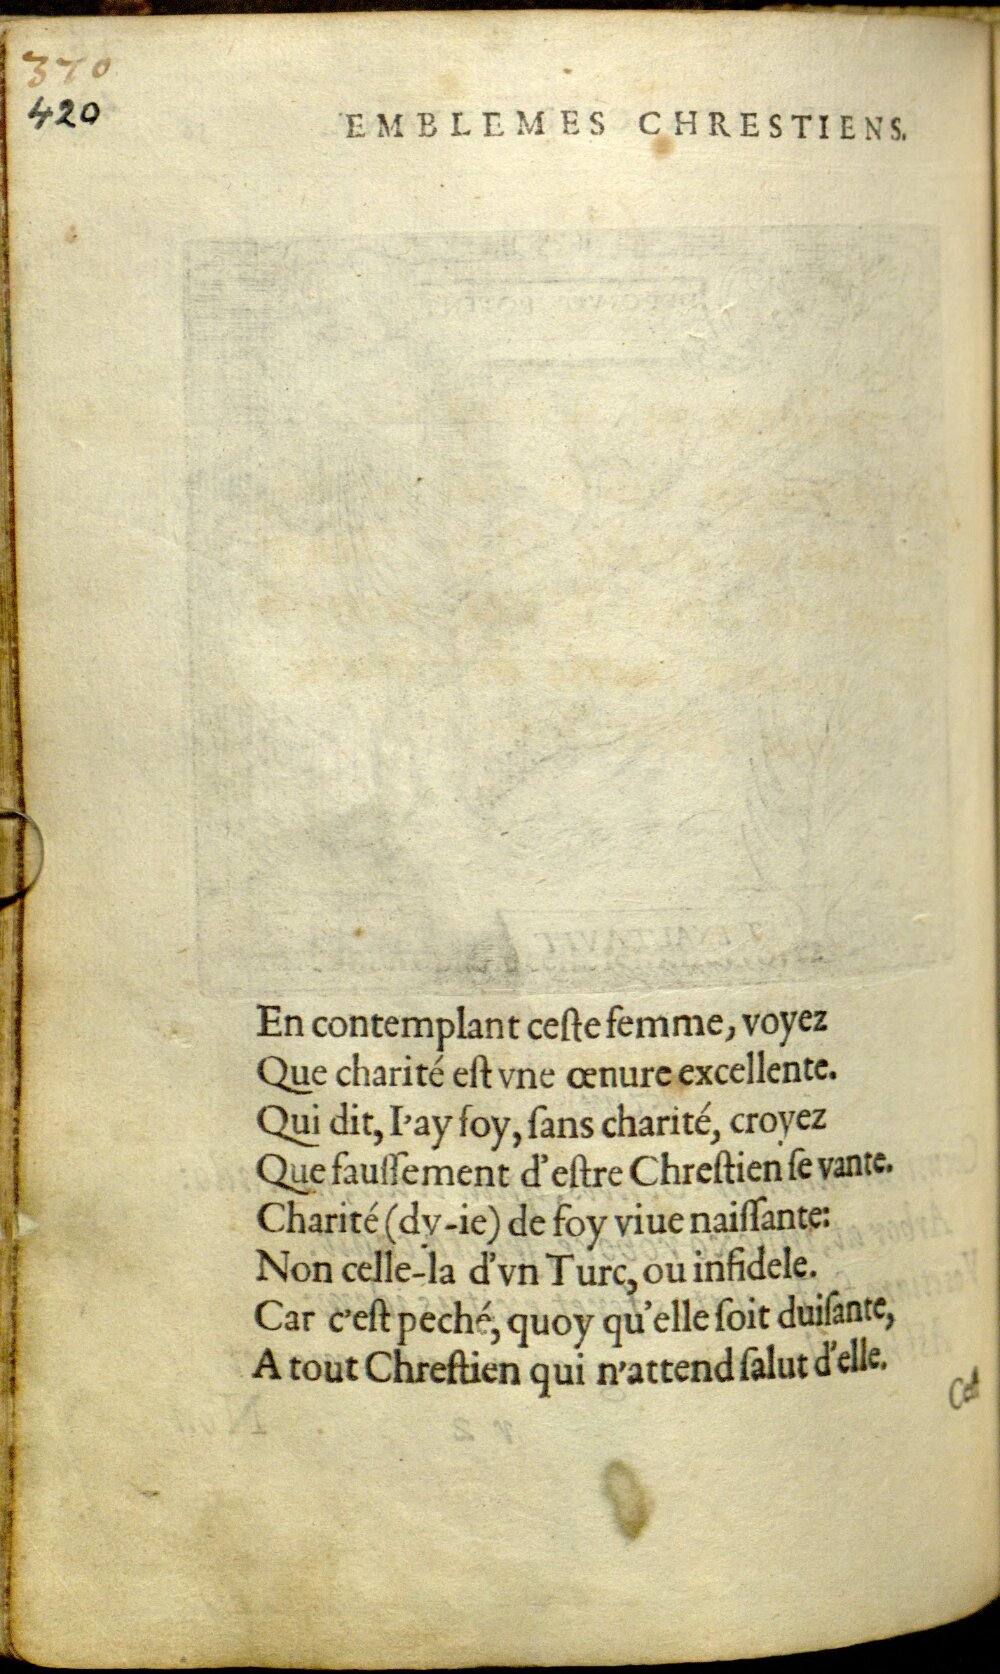 370
420
EMBLEMES CHRESTIENS.
En contemplant ceſte femme, voyez
Que charité eſt vne œnure excellente.
Qui dit, I'ay foy, ſans charité, croyez
Que fauſſement d'eſtre Chreſtien ſe vante.
Charité (dy-ie) de foy viue naiſſante:
Non celle-la d'vn Turc, ou infidele.
Car c'eſt peché, quoy qu'elle ſoit duiſante,
A tout Chreſtien qui n'attend ſalut d'elle.